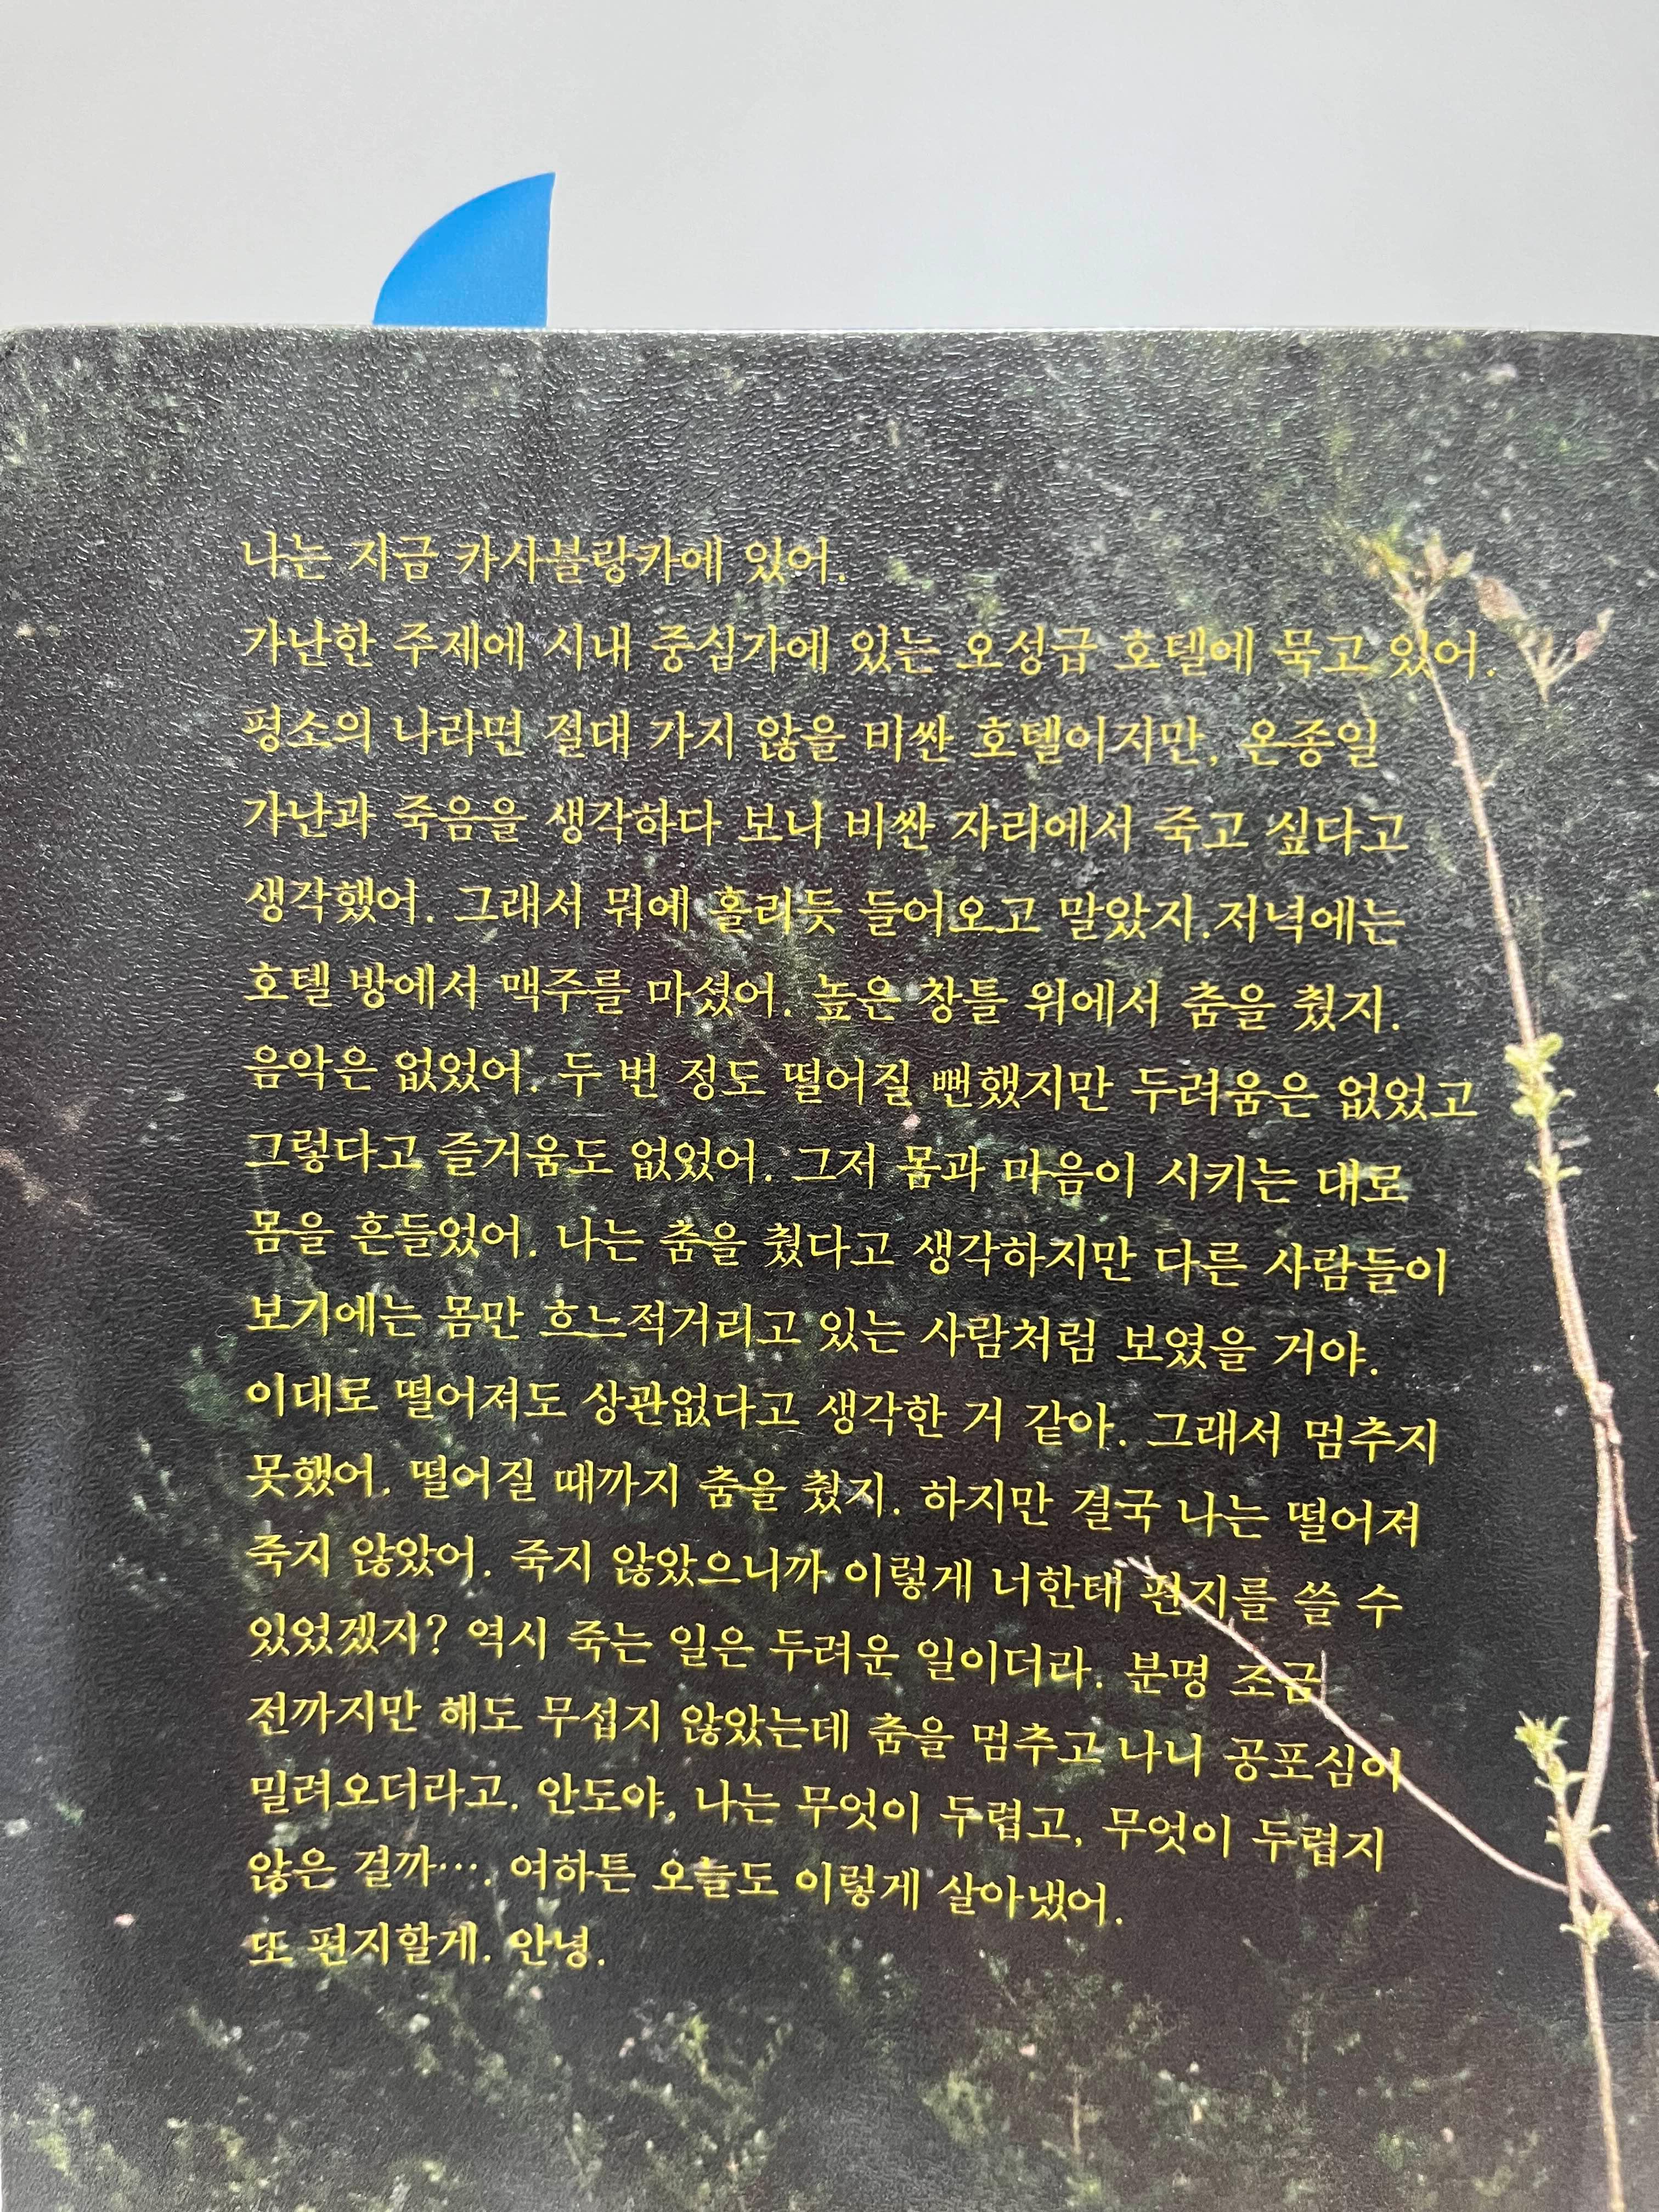 나는 지금 카사블랑카에 있어.
가난한 주제에 시내 중심가에 있는 오성급 호텔에 묵고 있어.
평소의 나라면 절대 가지 않을 비싼 호텔이지만, 온종일
가난과 죽음을 생각하다 보니 비싼 자리에서 죽고 싶다고
생각했어. 그래서 뭐에 홀리듯 들어오고 말았지.저녁에는
호텔 방에서 맥주를 마셨어. 높은 창틀 위에서 춤을 췄지.
음악은 없었어. 두 번 정도 떨어질 뻔했지만 두려움은 없었고
그렇다고 즐거움도 없었어. 그저 몸과 마음이 시키는 대로
몸을 흔들었어. 나는 춤을 췄다고 생각하지만 다른 사람들이
보기에는 몸만 흐느적거리고 있는 사람처럼 보였을 거야.
이대로 떨어져도 상관없다고 생각한 거 같아. 그래서 멈추지
못했어. 떨어질 때까지 춤을 췄지. 하지만 결국 나는 떨어져
죽지 않았어. 죽지 않았으니까 이렇게 너한테 편지를 쓸 수
있었겠지? 역시 죽는 일은 두려운 일이더라. 분명 조금
전까지만 해도 무섭지 않았는데 춤을 멈추고 나니 공포심이
밀려오더라고. 안도야, 나는 무엇이 두렵고, 무엇이 두렵지
않은 걸까…. 여하튼 오늘도 이렇게 살아냈어.
또 편지할게. 안녕.